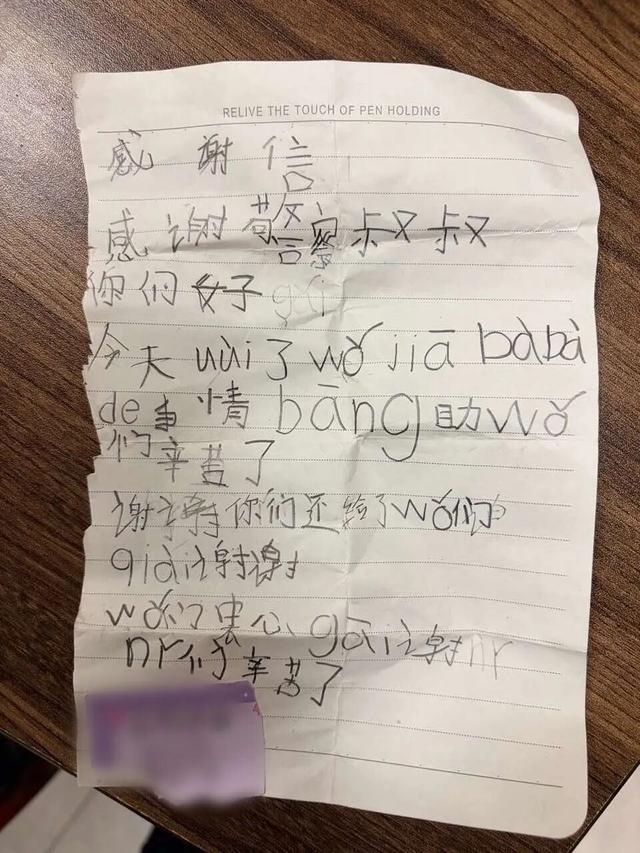 RELIVE THE TOUCH OF PEN HOLDING
感谢信
感谢警察叔叔
你们好
今天 uùi了wǒ jiā bàbà
de事情bāng助wǒ
们辛苦了
谢谢你们还给了wǒ们
qiái谢谢
wǒ们忠心gāi谢
nr们辛苦了